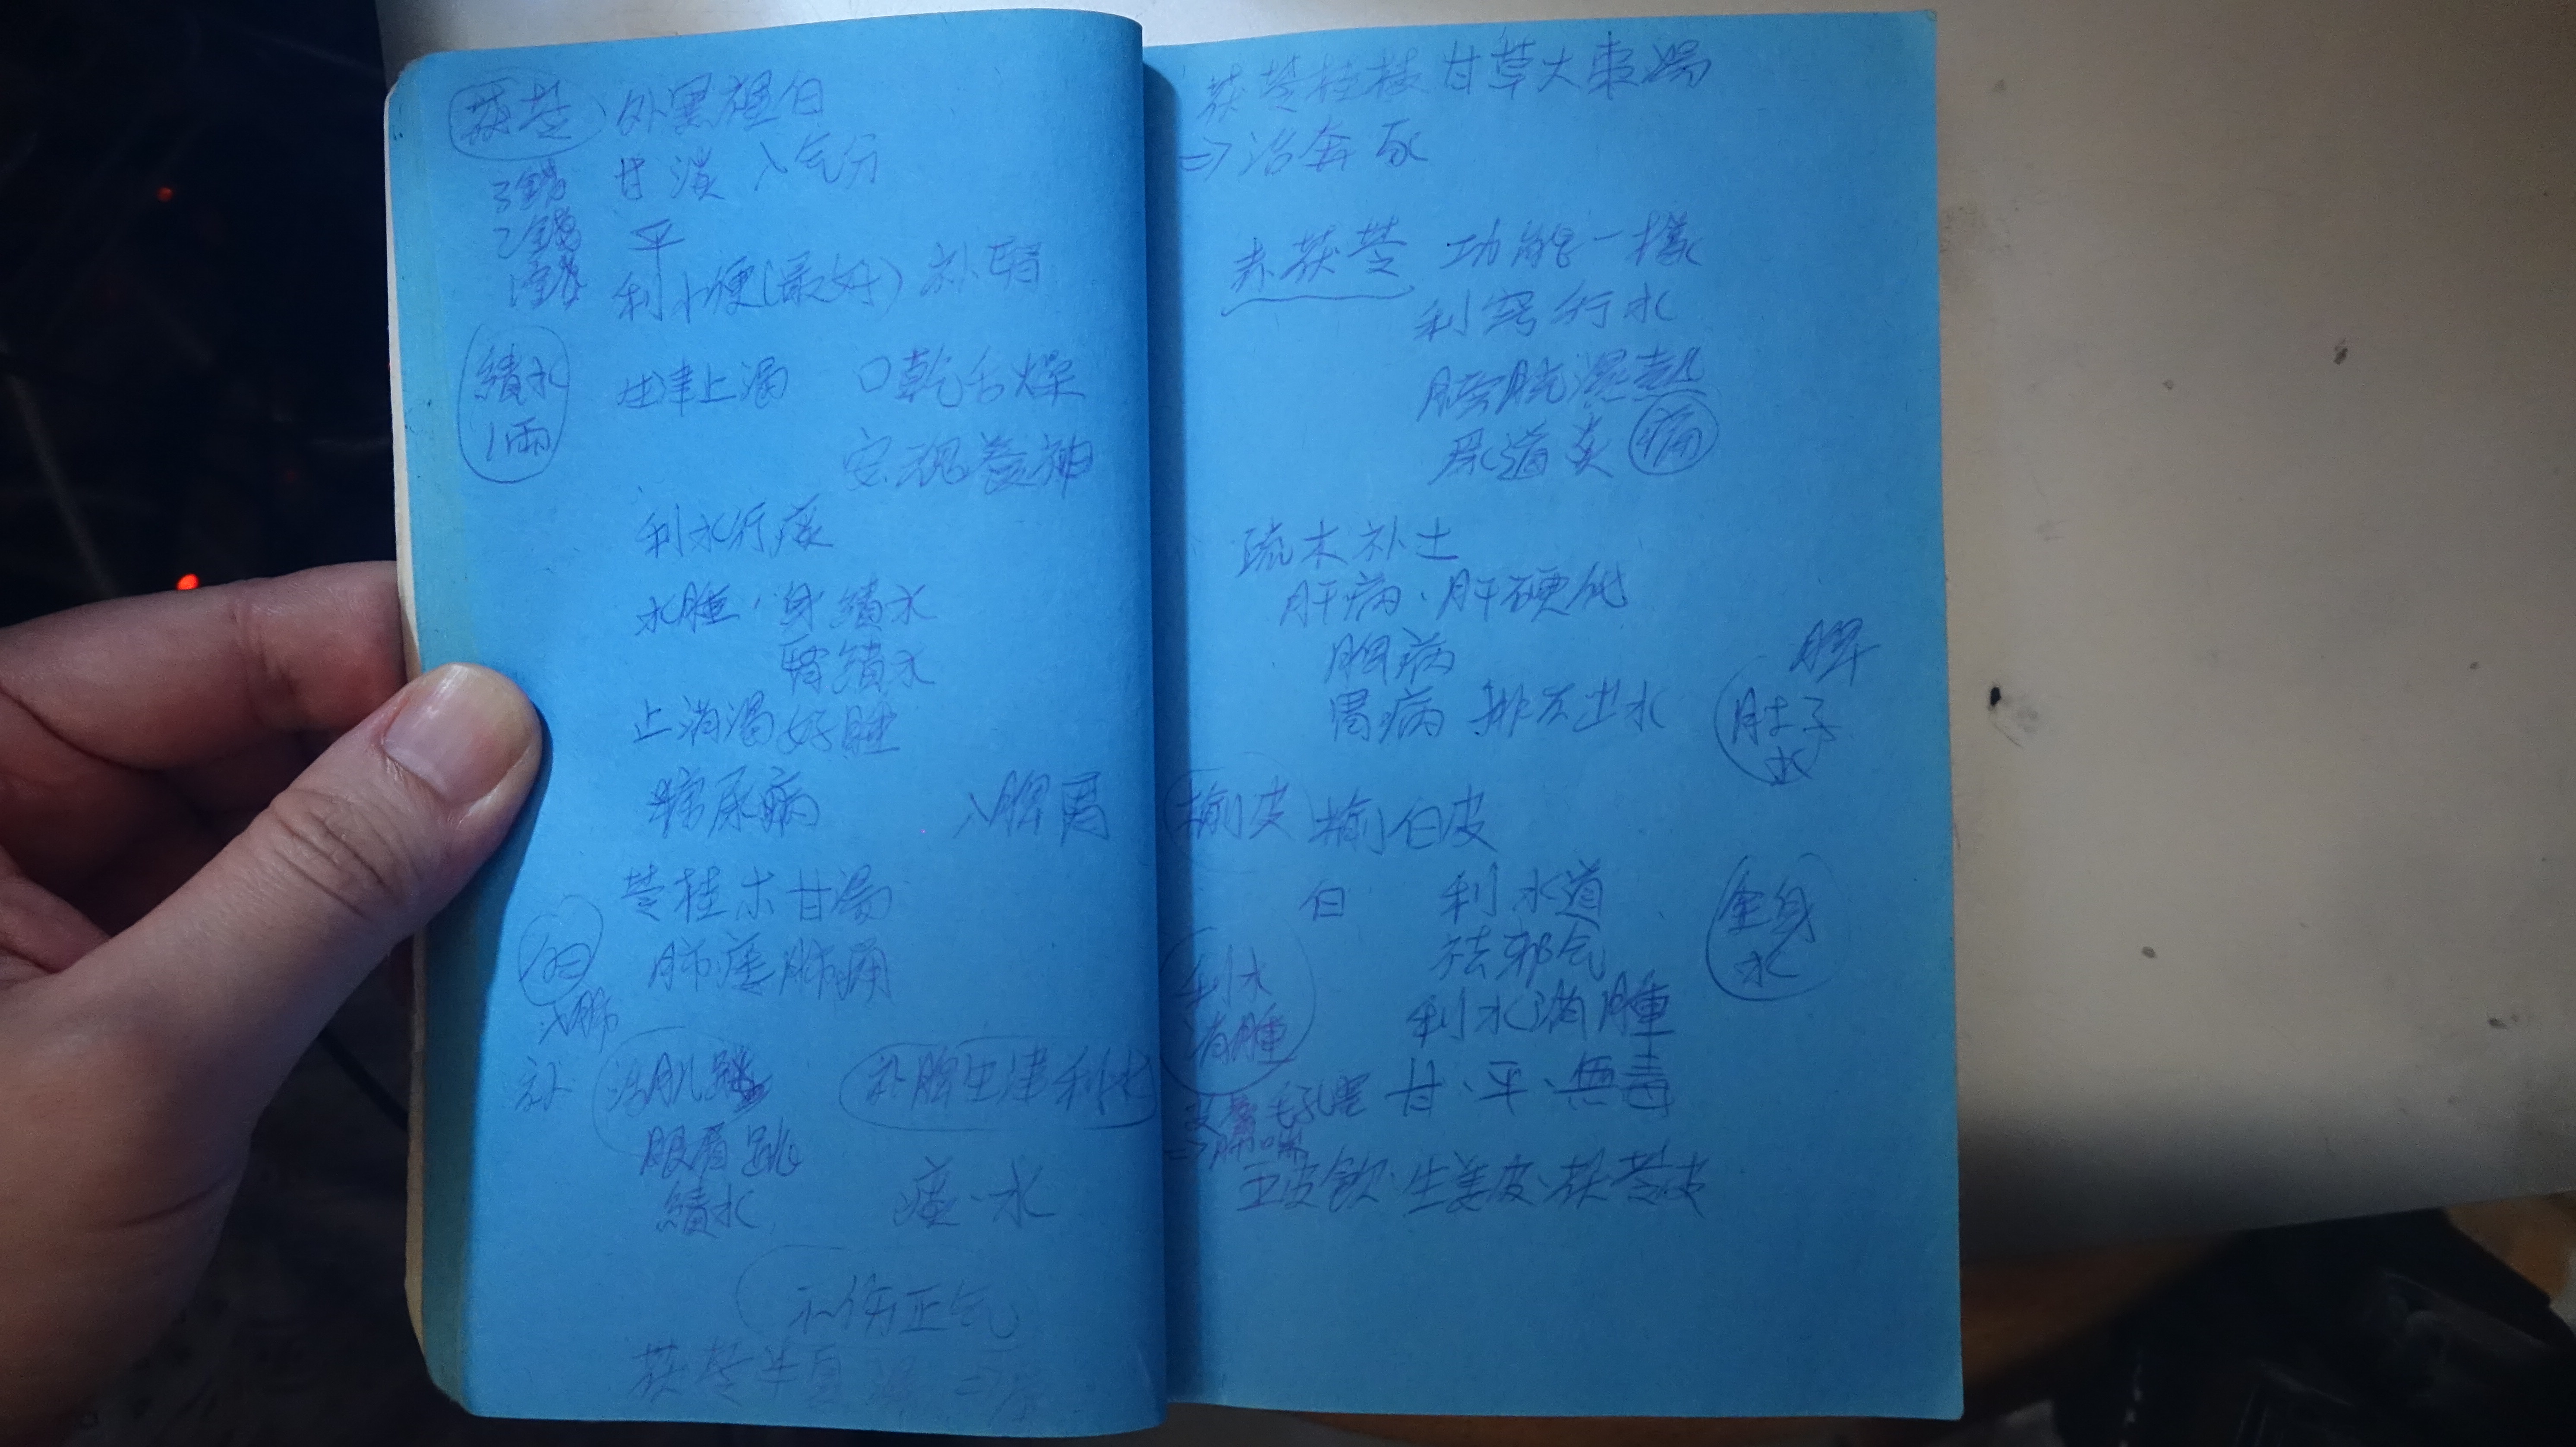 茯苓 外黑裡白
3錢 甘淡 入气分
2錢 平
1錢 利小便(最好) 补腎
積水 生津止渴 口乾舌燥
1兩
安魂養神
利水行痰
水腫、身積水
腎積水
止消渴好脾
糖尿病 入脾胃
苓桂朮甘湯
白 肺痿肺癰
入肺
补 治肌跳 补脾生津利水
眼眉跳
積水 痰、水
不伤正气
茯苓半夏湯
茯苓桂枝甘草大棗湯
⇒治奔豚
赤茯苓 功能一樣
利窍行水
膀胱濕熱
尿道炎 痛
疏木补土
肝病、肝硬化
胸病 脾
胃病 排不出水 肚子
水
榆皮 榆白皮
白 利水道 全身
祛邪气 水
利水 利水消腫
消腫
甘、平、無毒
五皮飲、生姜皮、茯苓皮